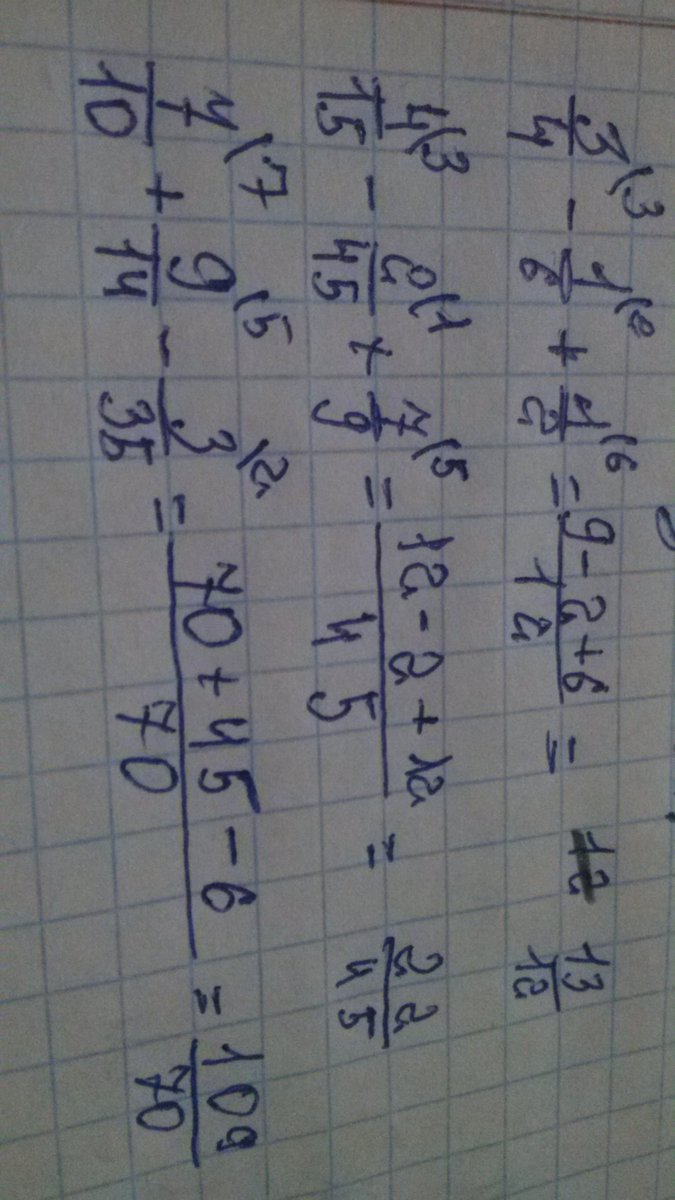 3/4\3 - 1/6\2 + 1/2\6 = (9-2+6)/12 = 13/12
4/15\3 - 2/45\1 + 7/9\5 = (12-2+12)/45 = 22/45
7/10\7 + 9/14\5 - 3/35\2 = (70+45-6)/70 = 109/70